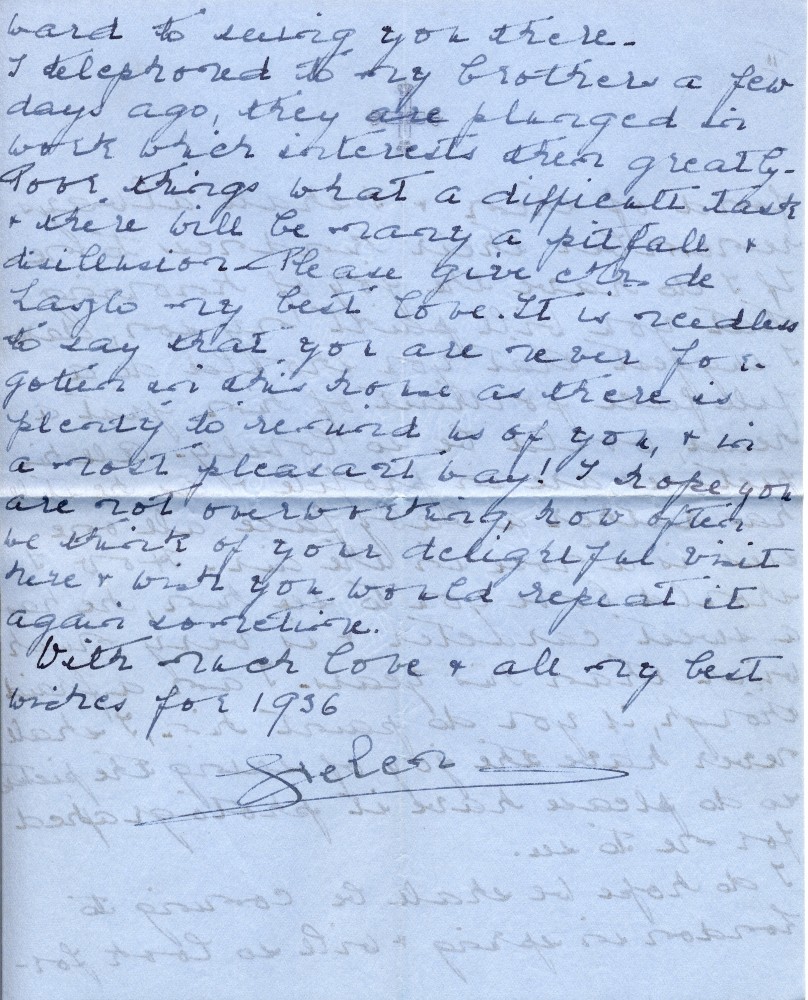 ward to seeing you there -
I telephoned to my brothers a few
days ago, they are plunged in
work which interests them greatly -
Poor things what a difficult task
& there will be many a pitfall &
disillusion - Please give Mrs. de
Laszlo my best love. It is needless
to say that you are never for-
gotten in this house as there is
plenty to remind us of you, & in
a most pleasant way! I hope you
are not overworking, how often
we think of your delightful visit
here & wish you would repeat it
again sometime.
With much love & all my best
wishes for 1936
Helen